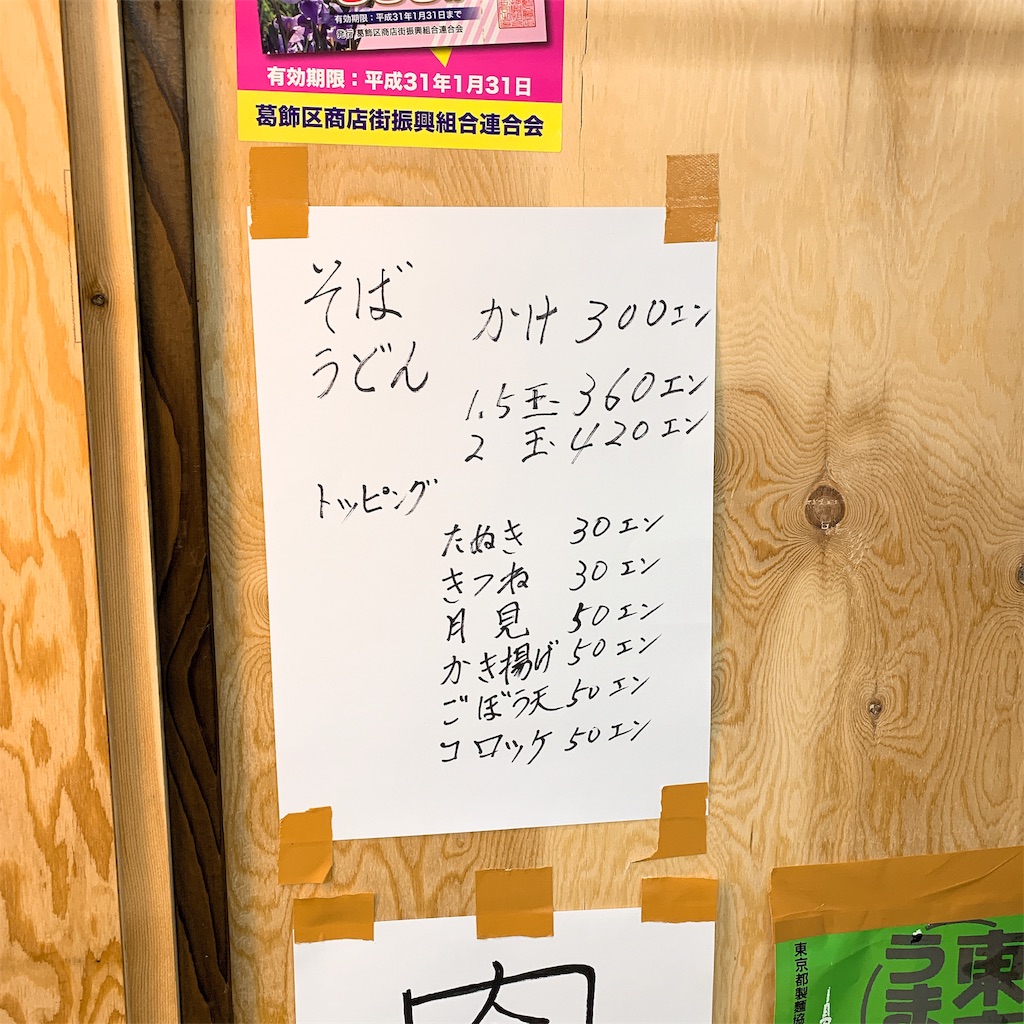 有効期限：平成31年1月31日まで
発行 葛飾区商店街振興組合連合会
有効期限：平成31年1月31日
葛飾区商店街振興組合連合会
そば
うどん
かけ 300エン
1.5玉 360エン
2 玉 420エン
トッピング
たぬき 30エン
きつね 30エン
月見 50エン
かき揚げ 50エン
ごぼう天 50エン
コロッケ 50エン
肉
東京都製麺協
東
うま